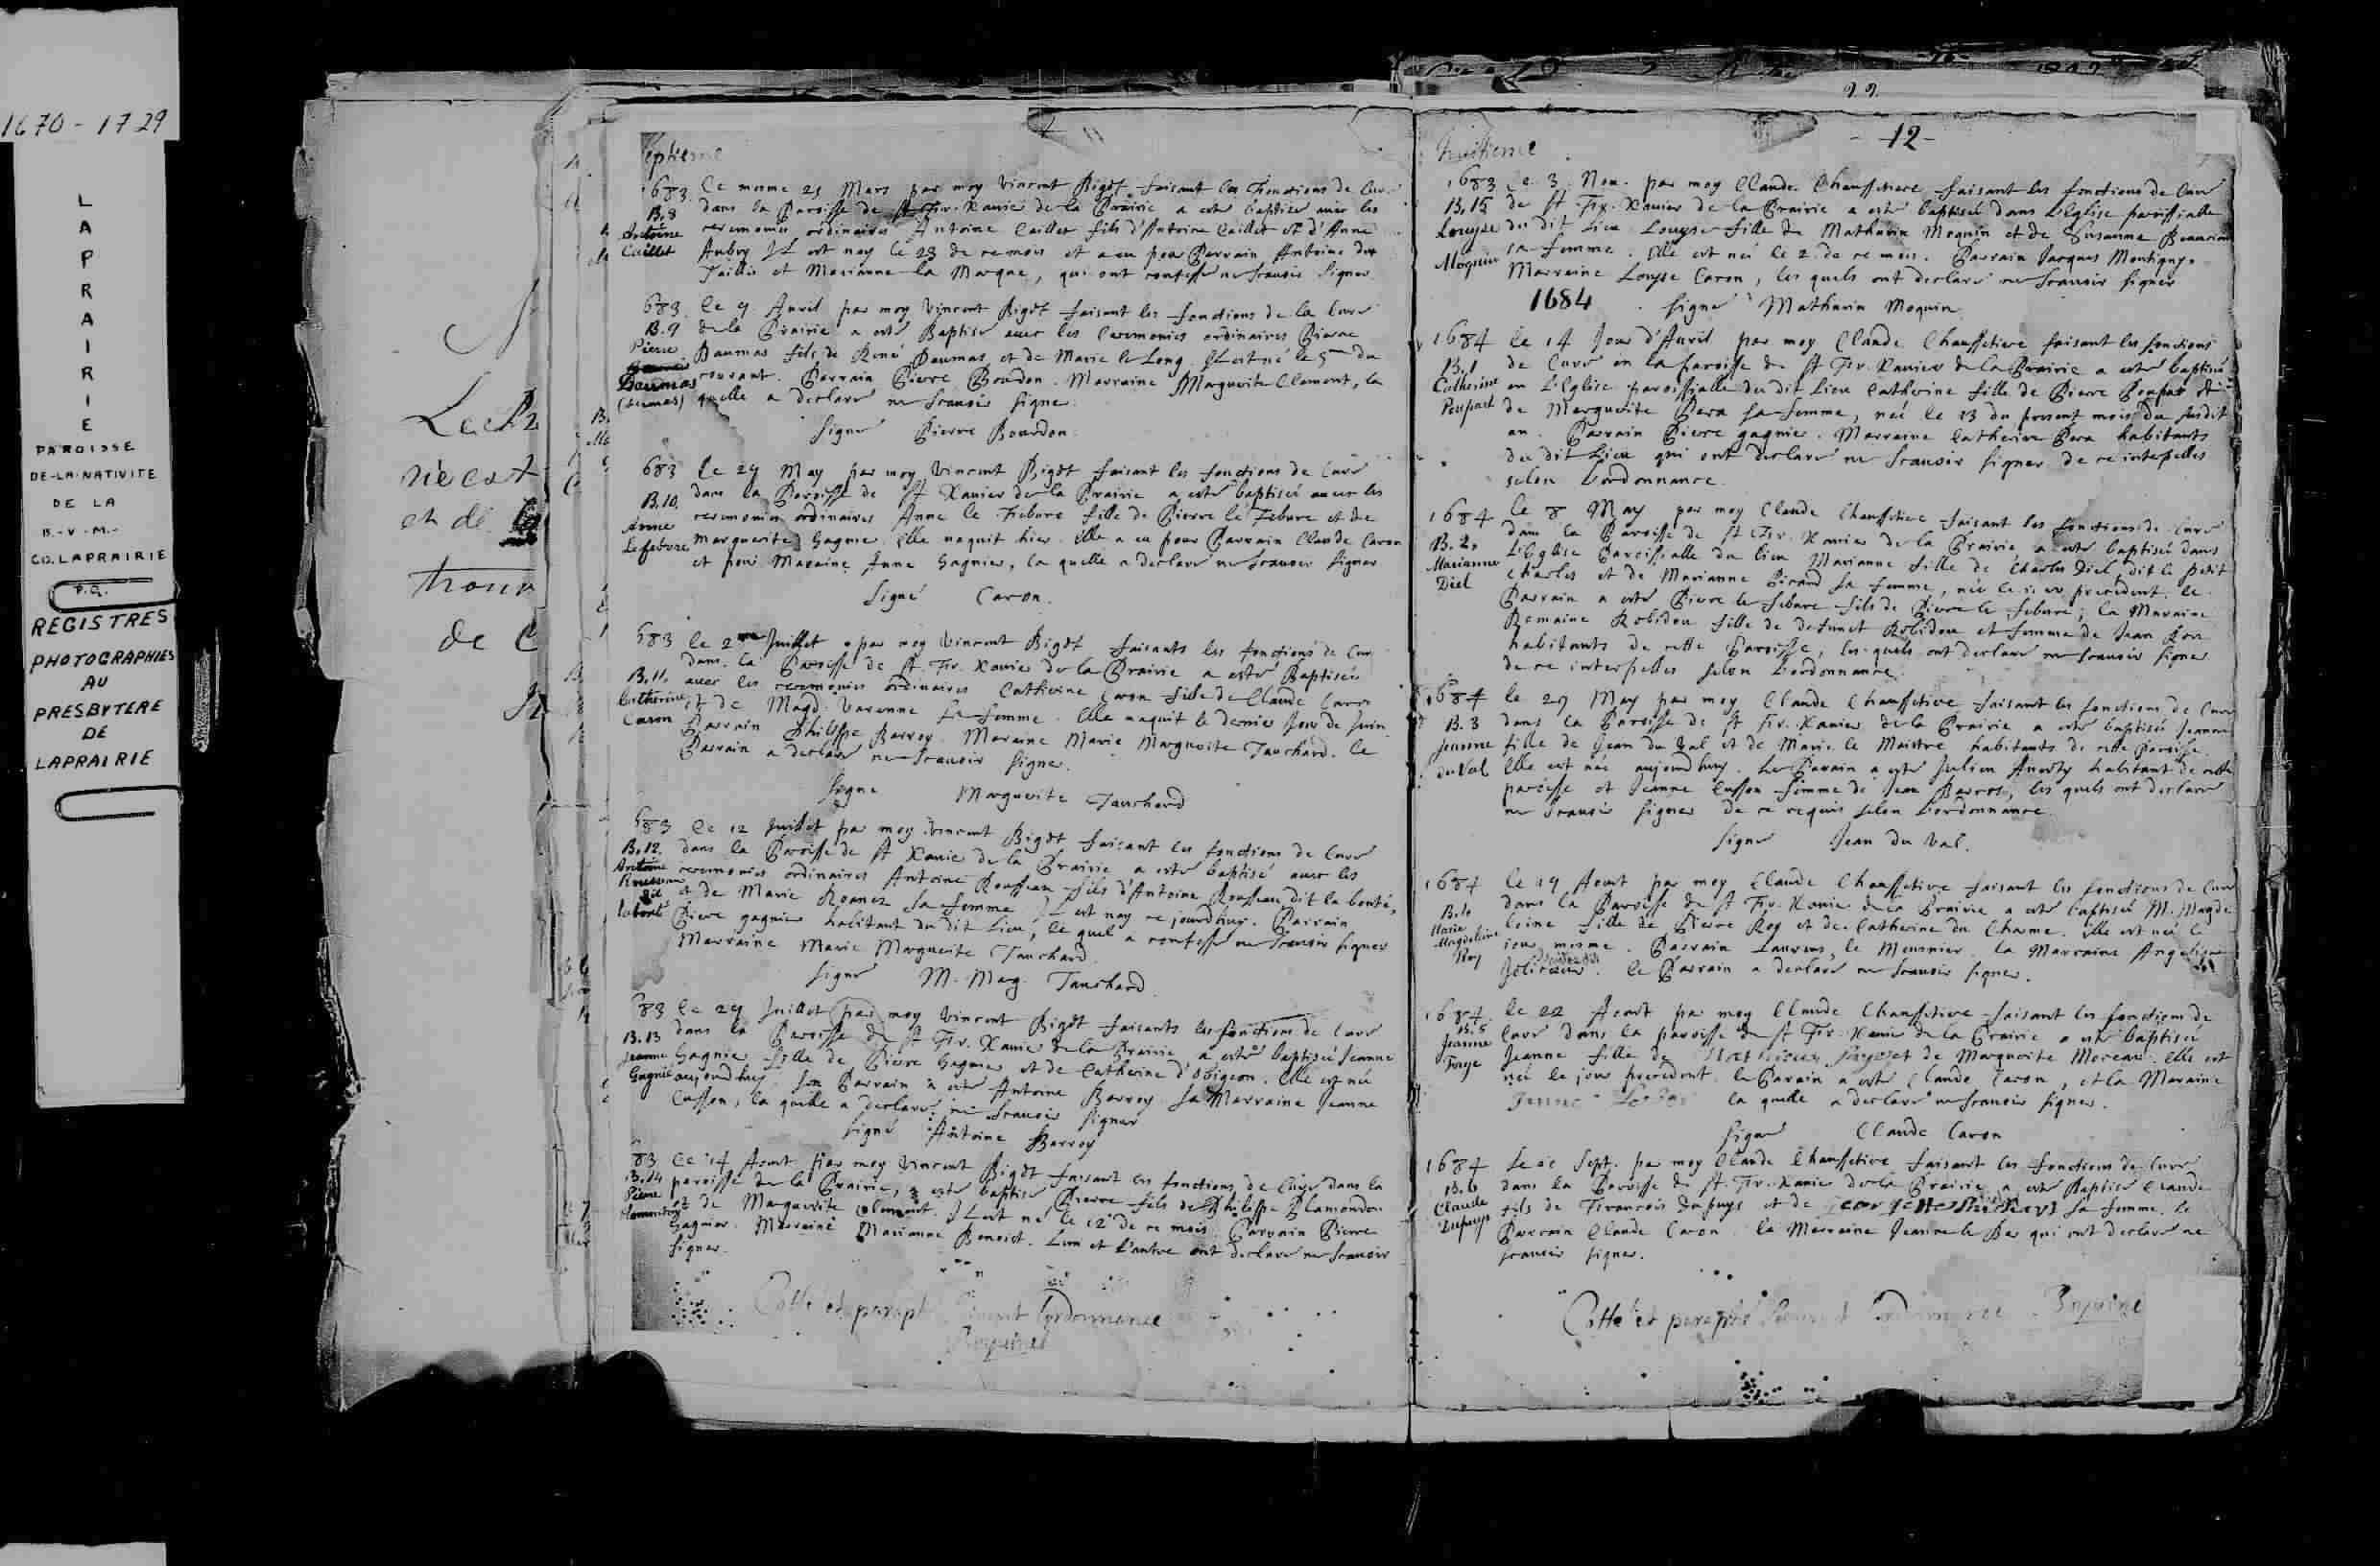 1670-1729
L
A
P
R
A
I
R
I
E
PAROISSE
DE-LA-NATIVITE
DE LA
B-V-M-
CO. LAPRAIRIE
P.Q.
REGISTRES
PHOTOGRAPHIES
AU
PRESBYTERE
DE
LAPRAIRIE
et de
trouv
de
11
eptieme
1683. Le mesme 25 Mars par moy Vincent Bigot faisant les Fonctions de Curé
B.8 dans la Paroisse de St Fr. Xavier de la Prairie a esté baptisé avec les
Antoine ceremonies ordinaires Antoine Caillet fils d'Antoine Caillet et d'Anne
Caillet Aubry Il est nay le 23 de ce mois et a eu pour Parrain Antoine du
Taillis et Marianne la Marque, qui ont confessé ne scavoir signer
683. Le 9 Avril par moy Vincent Bigot faisant les fonctions de la Cure
B.9 de la Prairie a esté Baptisé avec les Ceremonies ordinaires Pierre
Pierre Daumas fils de René Daumas et de Marie le Long. Il est né le 5me du
Daumas courant. Parrain Pierre Bourdon. Marraine Marguerite Clement, la
(Dumas) quelle a declaré ne scavoir signer.
Signé Pierre Bourdon
683 Le 29 May par moy Vincent Bigot faisant les fonctions de Curé
B.10. dans la Paroisse de St Xavier de la Prairie a esté baptiseé avec les
Anne ceremonies ordinaires Anne le Febure fille de Pierre le Febure et de
Lefebvre Marguerite Gagnie. Elle naquit hier. Elle a eu pour Parrain Claude Caron
et pour Maraine Anne Gagnier, la quelle a declaré ne scavoir signer
Signé Caron.
683 le 2me Juillet par moy Vincent Bigot faisants les fonctions de Cur
dans la Paroisse de St. Fr. Xavier de la Prairie a esté Baptiseé
B.11. avec les ceremonies ordinaires Catherine Caron fille de Claude Caron
Catherine et de Magd. Varenne sa femme. Elle naquit le dernier Jour de Juin
Caron Parrain Philippe Barroy. Maraine Marie Marguerite Tauchard. le
Parrain a declaré ne scavoir signer.
Signé Marguerite Tauchard
683 Le 12 Juillet par moy Vincent Bigot faisant les fonctions de Curé
B.12. dans la Paroisse de St Xavier de la Prairie a esté baptisé avec les
Antoine ceremonies ordinaires Antoine Rousseau fils d'Antoine Rousseau dit la bonté,
Rousseau dit et de Marie Roanes sa femme Il est nay ce jourdhuy. Parrain
labonté Pierre gagnier habitant du dit Lieu, le quel a confessé ne scavoir signer
Marraine Marie Marguerite Tauchard.
Signé M. Marg. Tauchard
83 Le 29 Juillet par moy Vincent Bigot faisants les fonctions de Curé
B.13 dans la Paroisse de St Fr. Xavier de la Prairie a esté baptiseé Jeanne
Jeanne Gagnier fille de Pierre Gagnier et de Catherine d'Obigeon. Elle est née
Gagnié aujourdhuy Son Parrain a esté Antoine Barroy La Marraine Jeanne
Cusson, la quelle a declaré ne scavoir signer
Signé Antoine Barroy
83 Le 14 Aoust par moy Vincent Bigot faisant les fonctions de Curé dans la
B.14 paroisse de la Prairie, a esté baptisé Pierre fils de Philippe Plamondon
Pierre et de Marguerite Clement. Il est né le 12 de ce mois Parrain Pierre
Gagnier. Marraine Marianne Benoist. L'un et l'autre ont declaré ne scavoir
signer.
Cotté et paraphé suivant l'ordonnance
-12-
huitieme
1683 Le 3 Nou. par moy Claude Chauffetiere faisant les fonctions de Curé
B.15 de St Fr. Xavier de la Prairie a esté baptiseé dans L'Eglise paroissialle
Louyse du dit Lieu Louyse fille de Mathurin Moquin et de Susanne Beaurian
Moquin sa femme. Elle est neé le 2 de ce mois. Parrain Jacques Montigny.
Marraine Louyse Caron, les quels ont declaré ne scavoir signer
1684 Signé Mathurin Moquin
1684 Le 14 Jour d'Avril par moy Claude Chauffetiere faisant les fonctions
B.1 de Curé en la Paroisse de St Fr. Xavier de la Prairie a esté baptiseé
Catherine en L'Eglise paroissialle du dit Lieu Catherine fille de Pierre Poupar et
Poupart de Marguerite Pera sa femme, neé le 13 du present mois du susdit
an. Parrain Pierre gagnier. Marraine Catherine Pera habitants
du dit Lieu qui ont declaré ne scavoir signer de ce interpellés
selon L'ordonnance.
1684 Le 8 May par moy Claude Chauffetiere faisant les fonctions de Curé
B.2. dans la Paroisse de St Fr. Xavier de la Prairie a esté baptiseé dans
Marianne L'Eglise Paroissialle du lieu Marianne fille de Charles Diel dit le petit
Diel Charles et de Marianne Picard sa femme, née le jour precedent. le
Parrain a esté Pierre le Febure fils de Pierre le Febure; la Maraine
Romaine Robidou fille de defunct Robidou et femme de Jean
habitants de cette Paroisse, les quels ont declaré ne scavoir signer
de ce interpellés selon L'ordonnance
1684 le 29 May par moy Claude Chauffetiere faisant les fonctions de Curé
B.3 dans la Paroisse de St Fr. Xavier de la Prairie a esté baptiseé Jeanne
Jeanne fille de Jean du Val et de Marie le Maistre habitants de cette paroisse
du Val Elle est née aujourdhuy. Le Parain a esté Julien habitant de cette
paroisse et Jeanne Cusson femme de Jean Bareau, les quels ont declaré
ne scavoir signer de ce requis selon L'ordonnance
Signé Jean du Val.
1684 le 19 Aoust par moy Claude Chauffetiere faisant les fonctions de Curé
B.4 dans la Paroisse de St Fr. Xavier de la Prairie a esté baptiseé M. Magde
Marie Magdeleine leine fille de Pierre Roy et de Catherine du Charme. Elle est neé le
Roy jour mesme. Parrain Laurens, le Meusnier. la Marraine Angelique
le Parrain a declaré ne scavoir signer.
1684 le 22 Aoust par moy Claude Chauffetiere faisant les fonctions de
B.5 Curé dans la paroisse de St Fr. Xavier de la Prairie a esté baptiseé
Jeanne Jeanne fille de Mathieu Faye et de Marguerite Moreau. Elle est
Faye neé le jour precedent. le Parain a esté Claude Caron, et la Maraine
la quelle a declaré ne scavoir signer.
Signé Claude Caron
1684 Le Sept. par moy Claude Chauffetiere faisant les fonctions de Curé
B.6 dans la Paroisse de St. Fr. Xavier de la Prairie a esté Baptisé Claude
Claude fils de Francois Dupuys et de sa femme. Le
Dupuys Parrain Claude Caron la Marraine Jeanne le Ber qui ont declaré ne
scavoir signer.
Cotté et paraphé